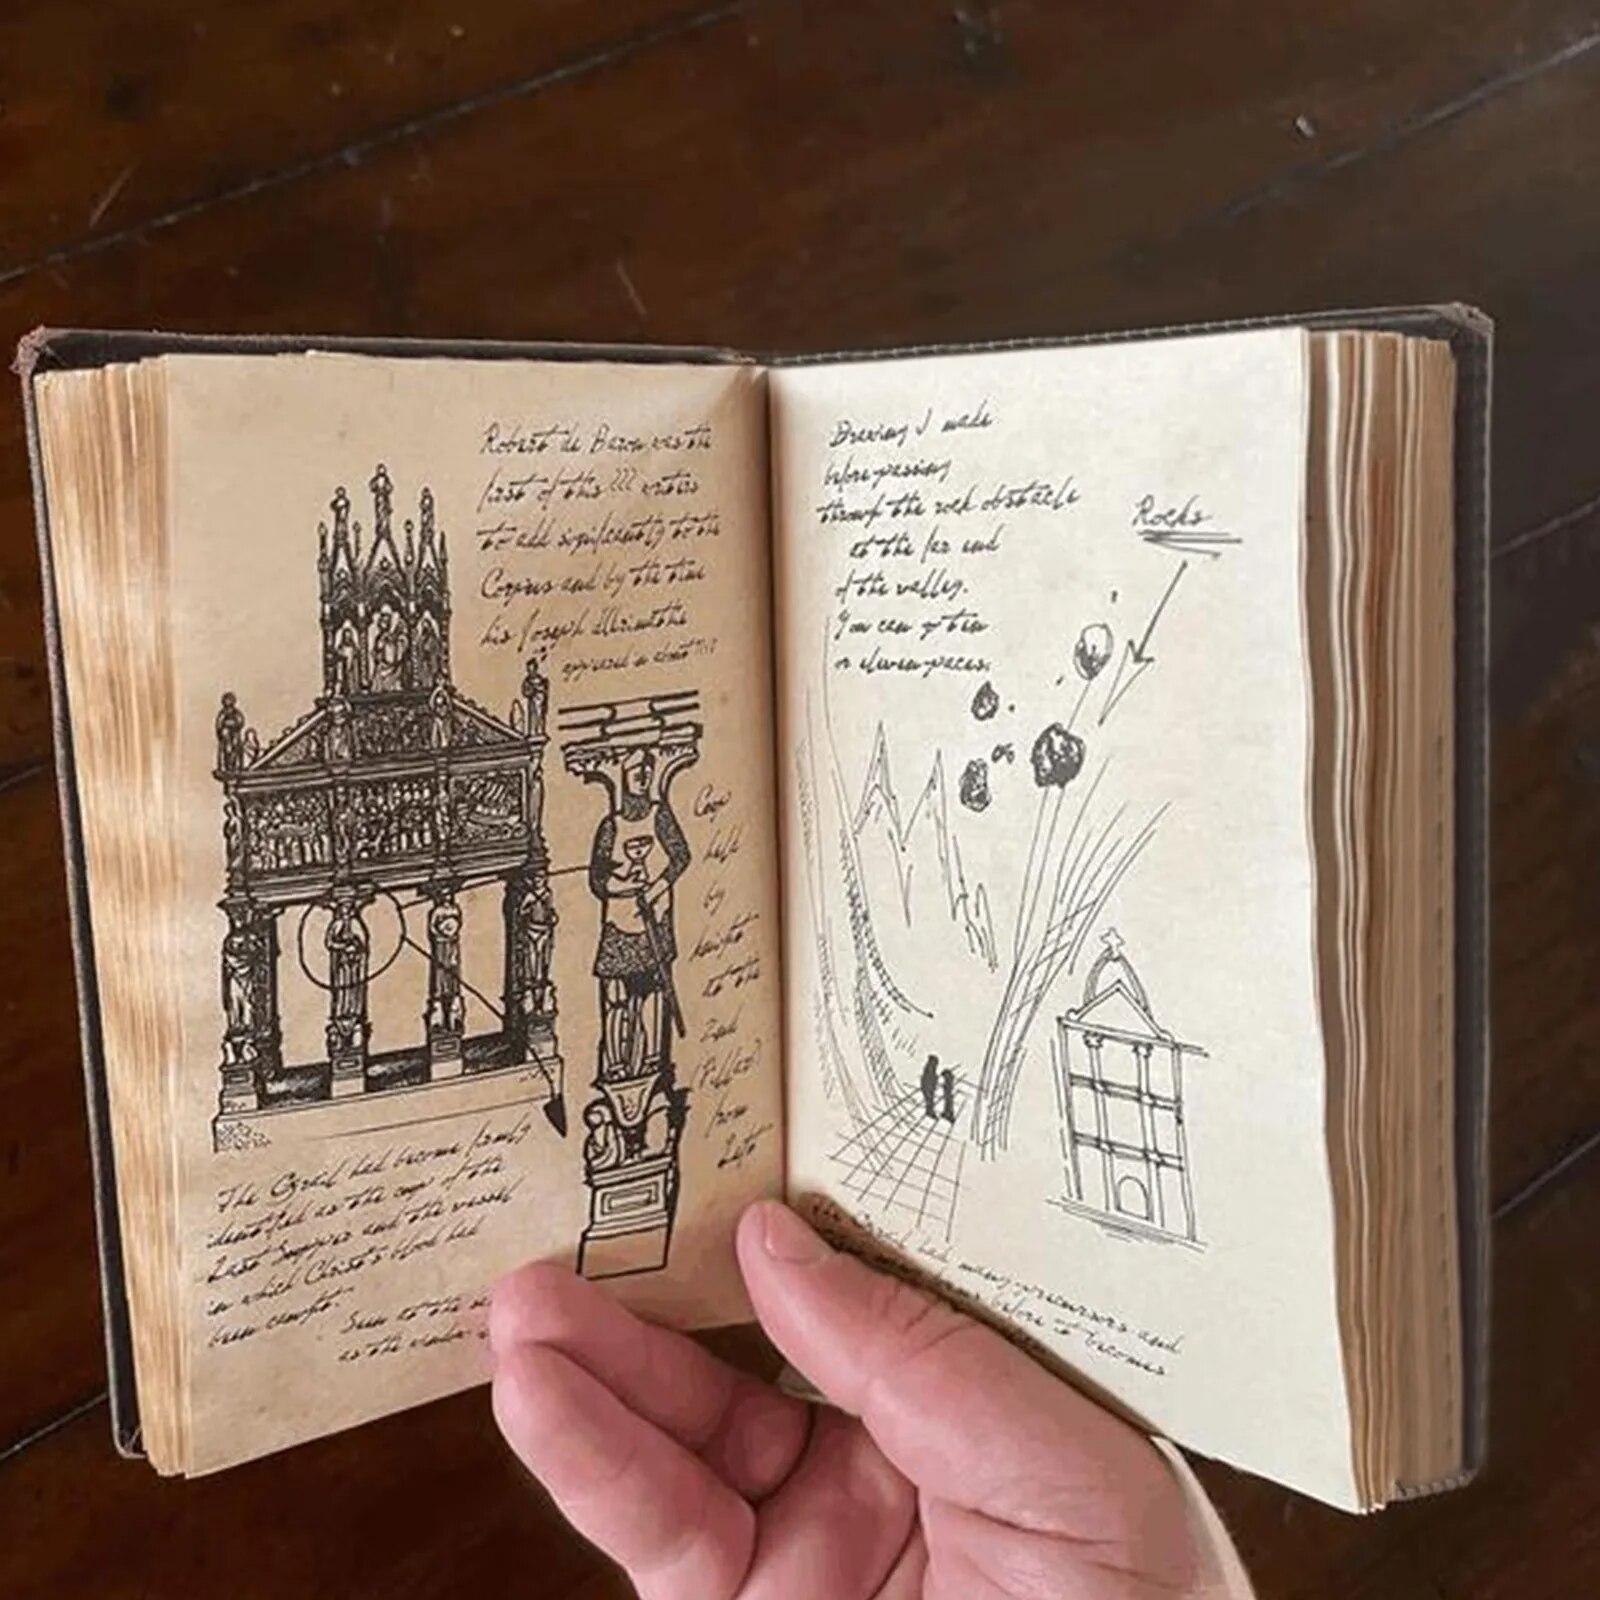 Robert de Boron was the
first of this ??? writers
to add significantly to the
Corpus and by the time
his Joseph d'Arimathe
appeared in about
Cup
held
by
knight
to the
2nd
(Pillar)
from
Left
The Grail had become firmly
identified as the cup of the
Last Supper and the vessel
in which Christ's blood had
been caught.
Seen to the
as the
Drawing I made
before passing
through the rock obstacle
at the far end
of the valley.
You can go ten
or eleven paces.
Rocks
or
The Grail had many precursors and
before it becomes